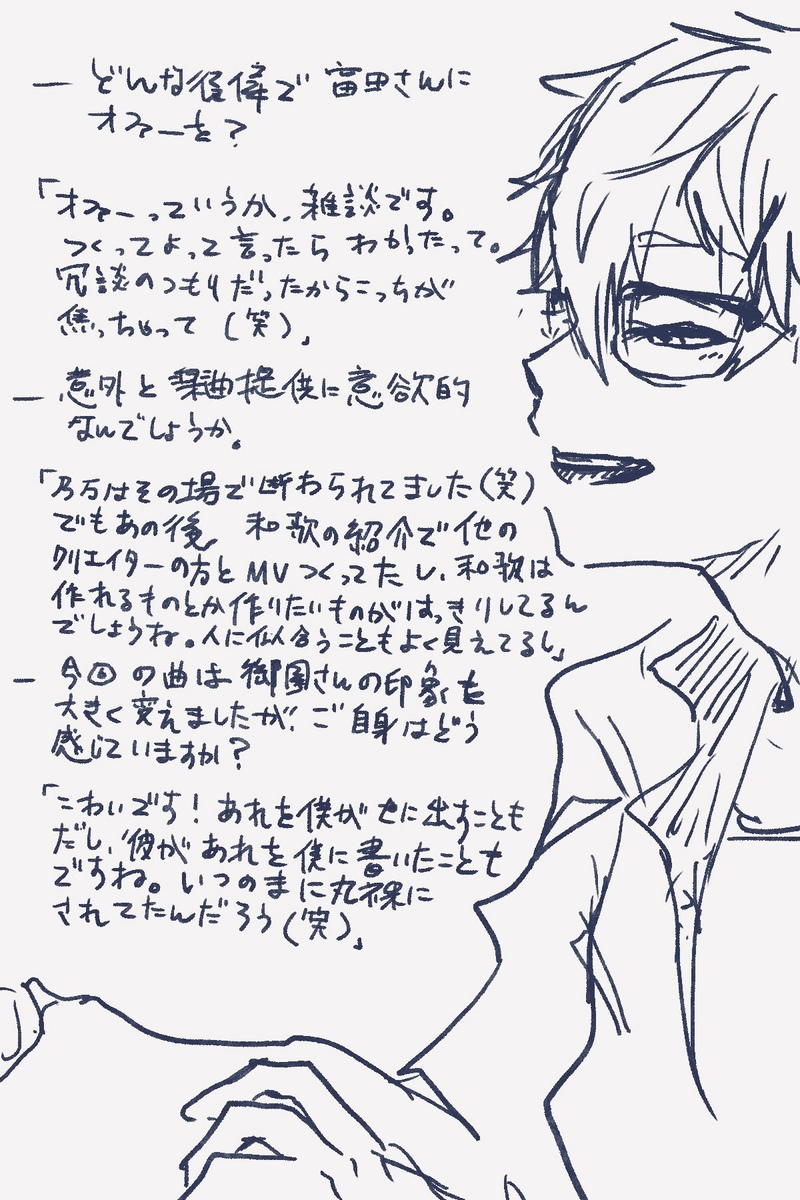 — どんな後偉で 富田さんに
オファーを?
「オファーっていうか、雑談です。
つくってよって言ったら わかったって。
冗談のつもりだったからこっちが
焦っちゃって (笑)」
— 意外と 楽曲提供に意欲的
なんでしょうか。
「乃万はその場で断わられてました(笑)
でもあの後 和歌の紹介で他の
クリエイターの方と MV つくってたし、和歌は
作れるものとか作りたいものがはっきりしてるん
でしょうね。人に似合うこともよく見えてるし」
— 今回 の曲は 御園さんの印象を
大きく変えましたが、ご自身はどう
感じていますか?
「こわいです! あれを僕が せに出すことも
だし、彼が あれを僕に書いたことも
ですね。いつのまに丸裸に
されてたんだろう (笑)」